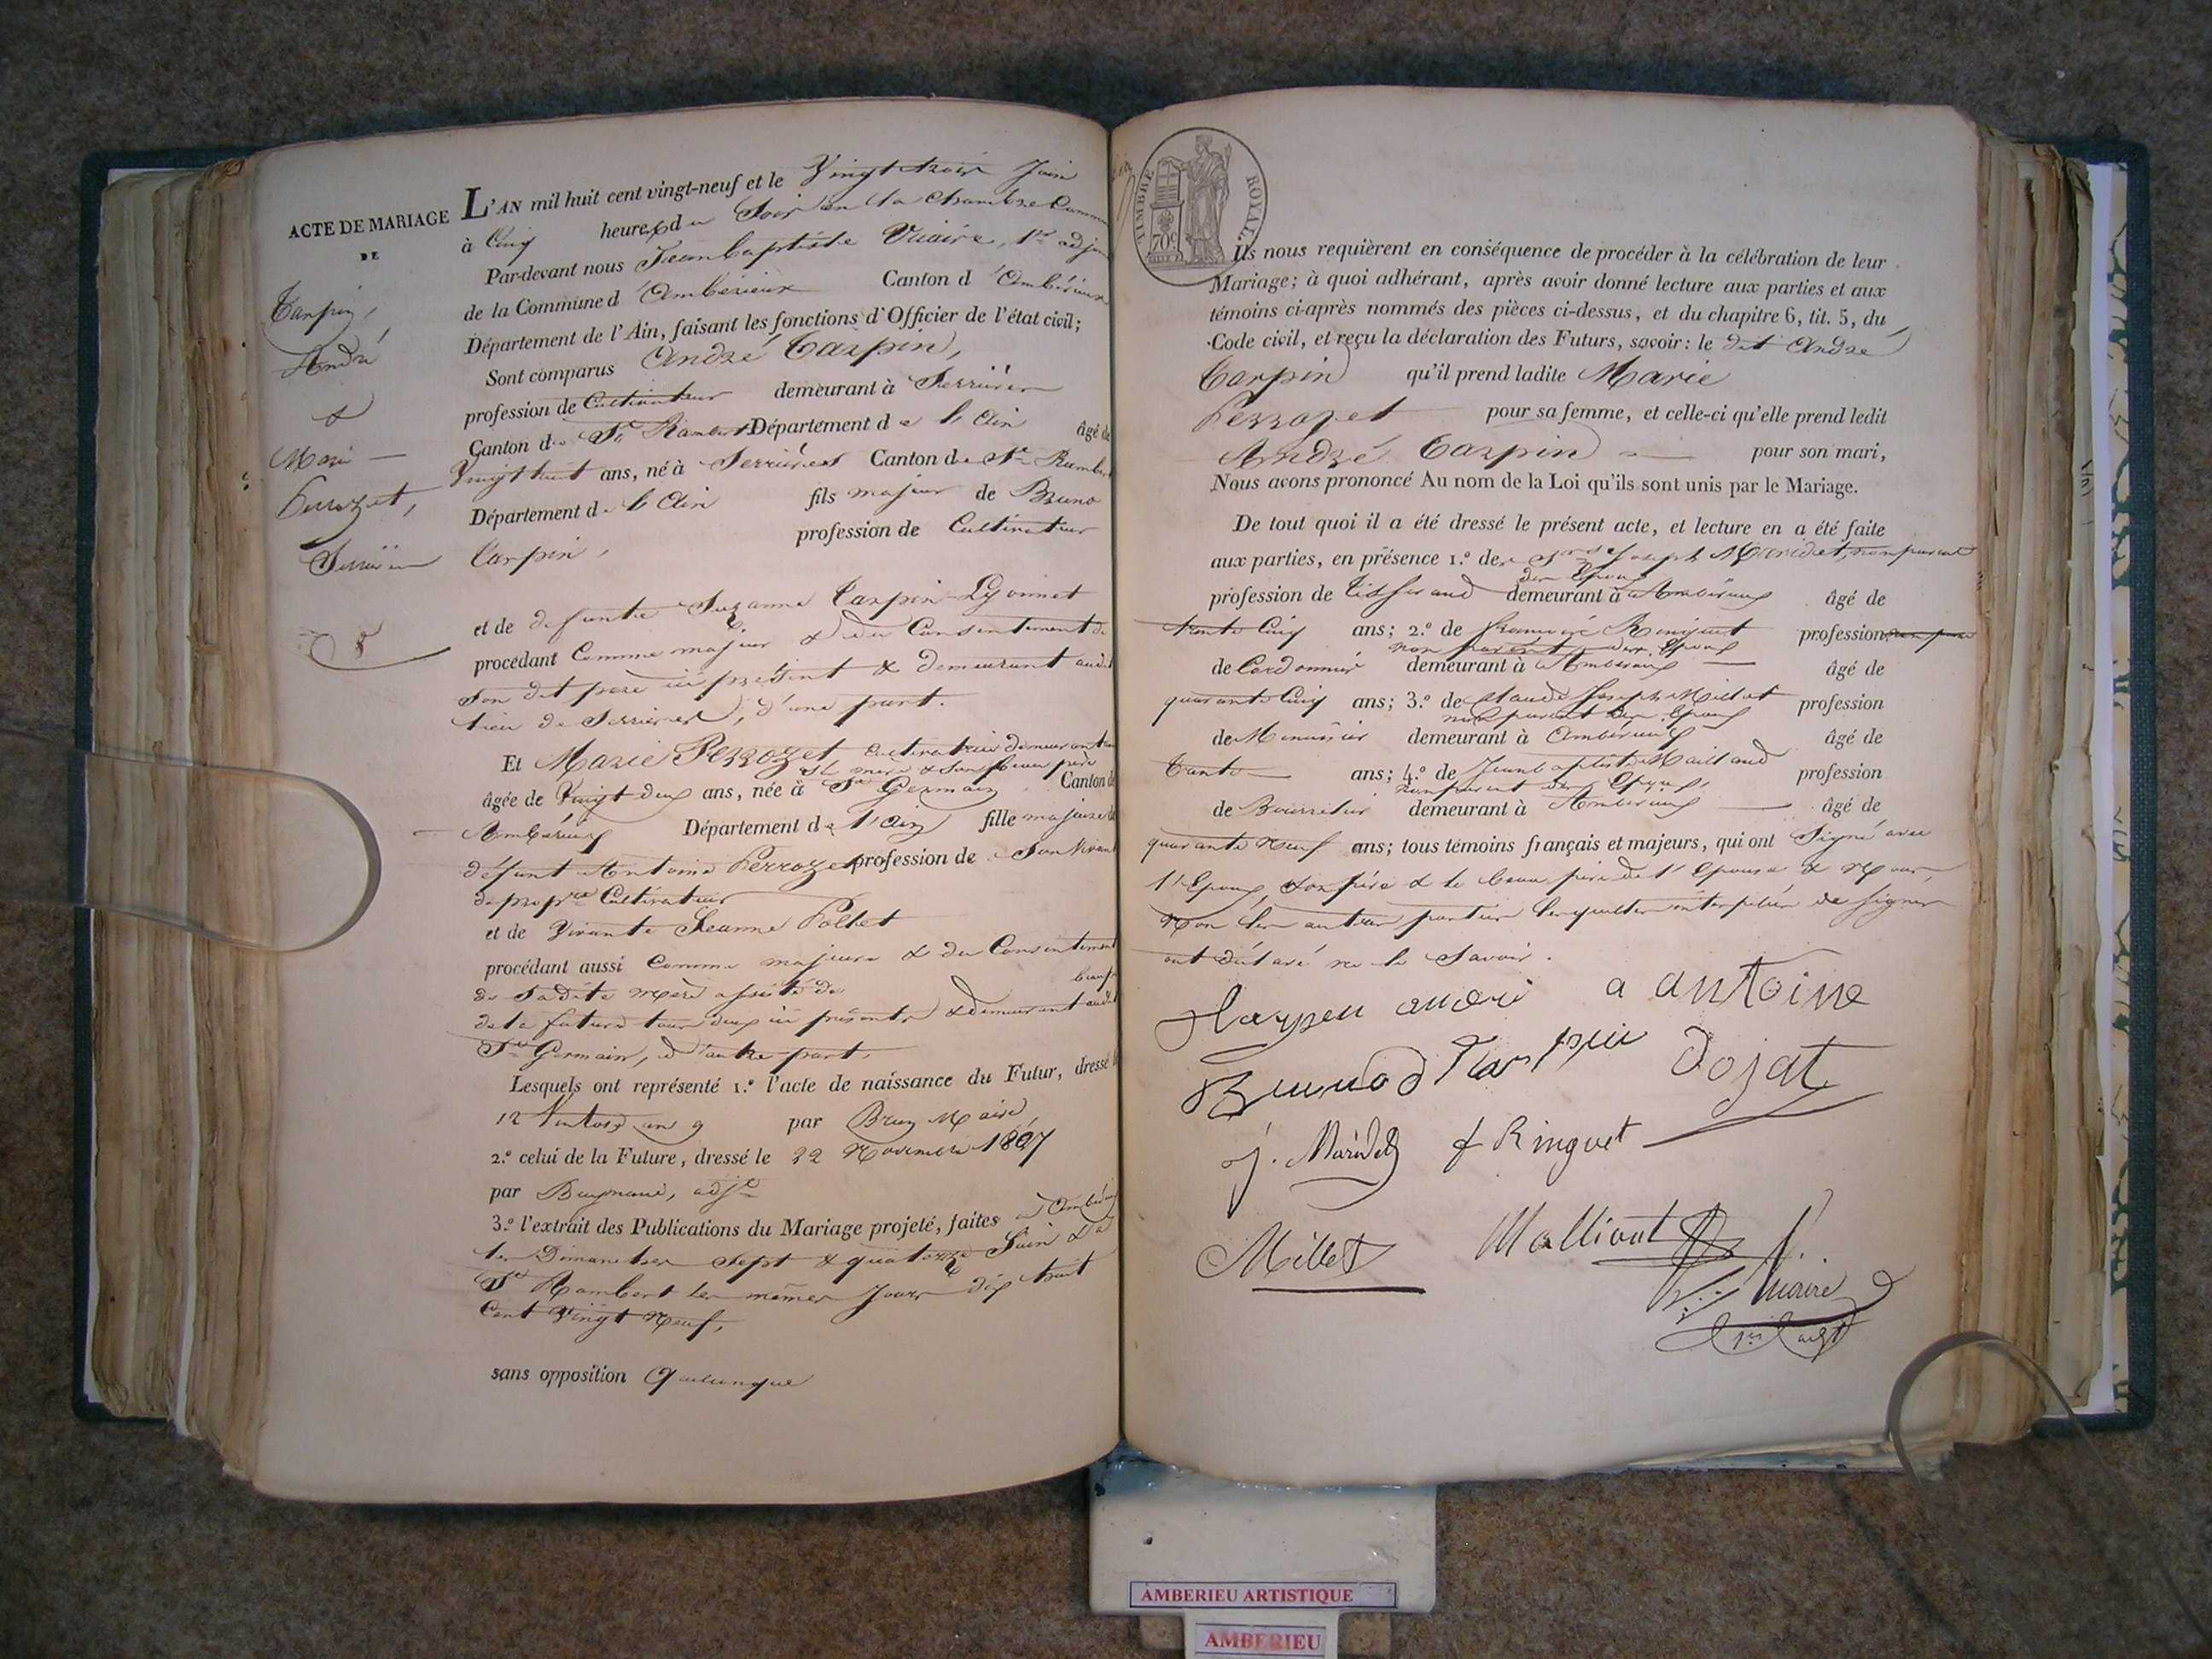 ACTE DE MARIAGE
DE
Tarpin,
André
&
Marie
Perrozet,
L'AN mil huit cent vingt-neuf et le Vingt trois Juin
à Cinq heures du Soir en la chambre Commu
Par-devant nous Jean baptiste Vuaire, 1er adjoi
de la Commune d'Ambérieux Canton d'Ambérieux
Département de l'Ain, faisant les fonctions d'Officier de l'état civil;
Sont comparus André Tarpin,
profession de Cultivateur demeurant à Serrières
Canton de St Rambert Département de l'Ain âgé de
Vingt huit ans, né à Serrières Canton de St Rambert
Département de l'Ain fils majeur de Bruno
Tarpin, profession de Cultivateur
et de defunte Suzanne Tarpin-Lyonnet
procédant Comme majeur & du Consentement de
Son dit pere ici présent & demeurant audit
lieu de Serrières, d'une part.
Et Marie Perrozet cultivatrice demeurant
sa mere & son beau père
âgée de Vingt deux ans, née à St Germain Canton d
Ambérieux Département de l'Ain fille majeure de
défunt Antoine Perrozet profession de Son Vivant
de propre Cultivateur
et de Vivante Jeanne Pollet
procédant aussi Comme majeure & du Consentement
de Sadite mere assistée de beau p
de la future tous deux ici présents & demeurant audit
St Germain, d'autre part.
Lesquels ont représenté 1.º l'acte de naissance du Futur, dressé le
12 Ventose an 9 par Bruy Maire,
2.º celui de la Future, dressé le 22 Novembre 1807
par adjt
3.º l'extrait des Publications du Mariage projeté, faites a Ambérieux
les Dimanches Sept & quatorze Juin & a
St Rambert les mêmes Jours dix huit
Cent Vingt Neuf,
sans opposition Quelconque
TIMBRE ROYAL
70c
Ils nous requièrent en conséquence de procéder à la célébration de leur
Mariage; à quoi adhérant, après avoir donné lecture aux parties et aux
témoins ci-après nommés des pièces ci-dessus, et du chapitre 6, tit. 5, du
Code civil, et reçu la déclaration des Futurs, savoir: le dit André
Tarpin qu'il prend ladite Marie
Perrozet pour sa femme, et celle-ci qu'elle prend ledit
André Tarpin pour son mari,
Nous avons prononcé Au nom de la Loi qu'ils sont unis par le Mariage.
De tout quoi il a été dressé le présent acte, et lecture en a été faite
aux parties, en présence 1.º des Srs Joseph Maridet, non parent
des Epoux
profession de tisserand demeurant à Ambérieux âgé de
trente Cinq ans; 2.º de françois Ringuet profession
non parent des Epoux
de Cordonnier demeurant à Ambérieux âgé de
quarante Cinq ans; 3.º de Claude Joseph Millet profession
non parent des Epoux
de Menuisier demeurant à Ambérieux âgé de
trente ans; 4.º de Jean baptiste Mailland profession
non parent des Epoux,
de Bourrelier demeurant à Ambérieux âgé de
quarante Neuf ans; tous témoins français et majeurs, qui ont Signé avec
l'Epoux, Son père & le beau père de l'Epouse & Nous,
Non les autres parties lesquelles interpellées de signer
ont déclaré ne le Savoir.
a antoine
dojat
J. Maridet f Ringuet
Millet
Vuaire
AMBERIEU ARTISTIQUE
AMBERIEU